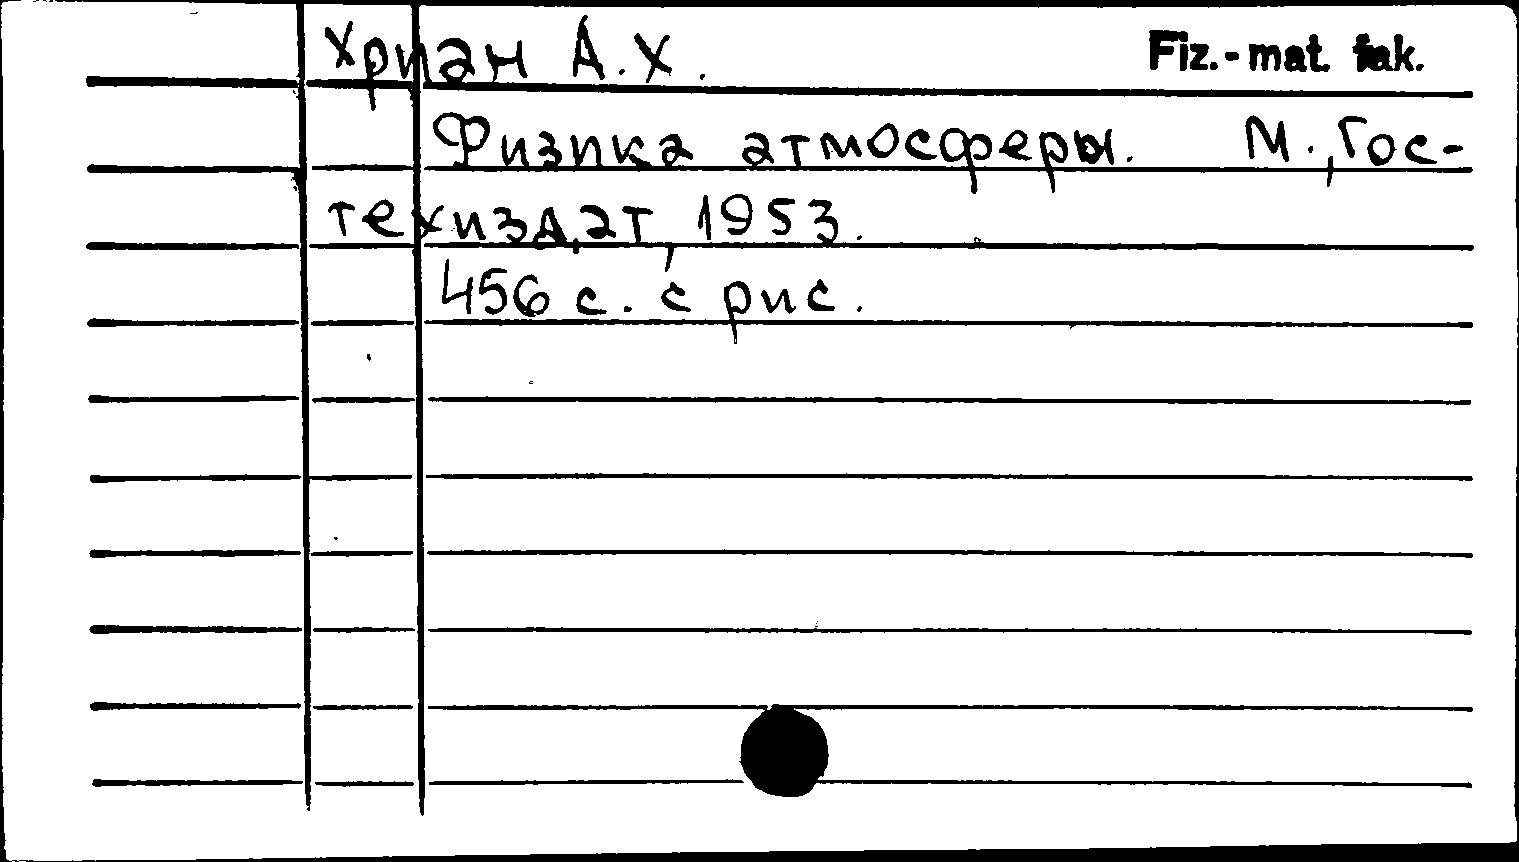 Хриан А.Х. Fiz.-mat. fak.
Физика атмосферы. М., Гос-
техиздат, 1953.
456 с. с рис.